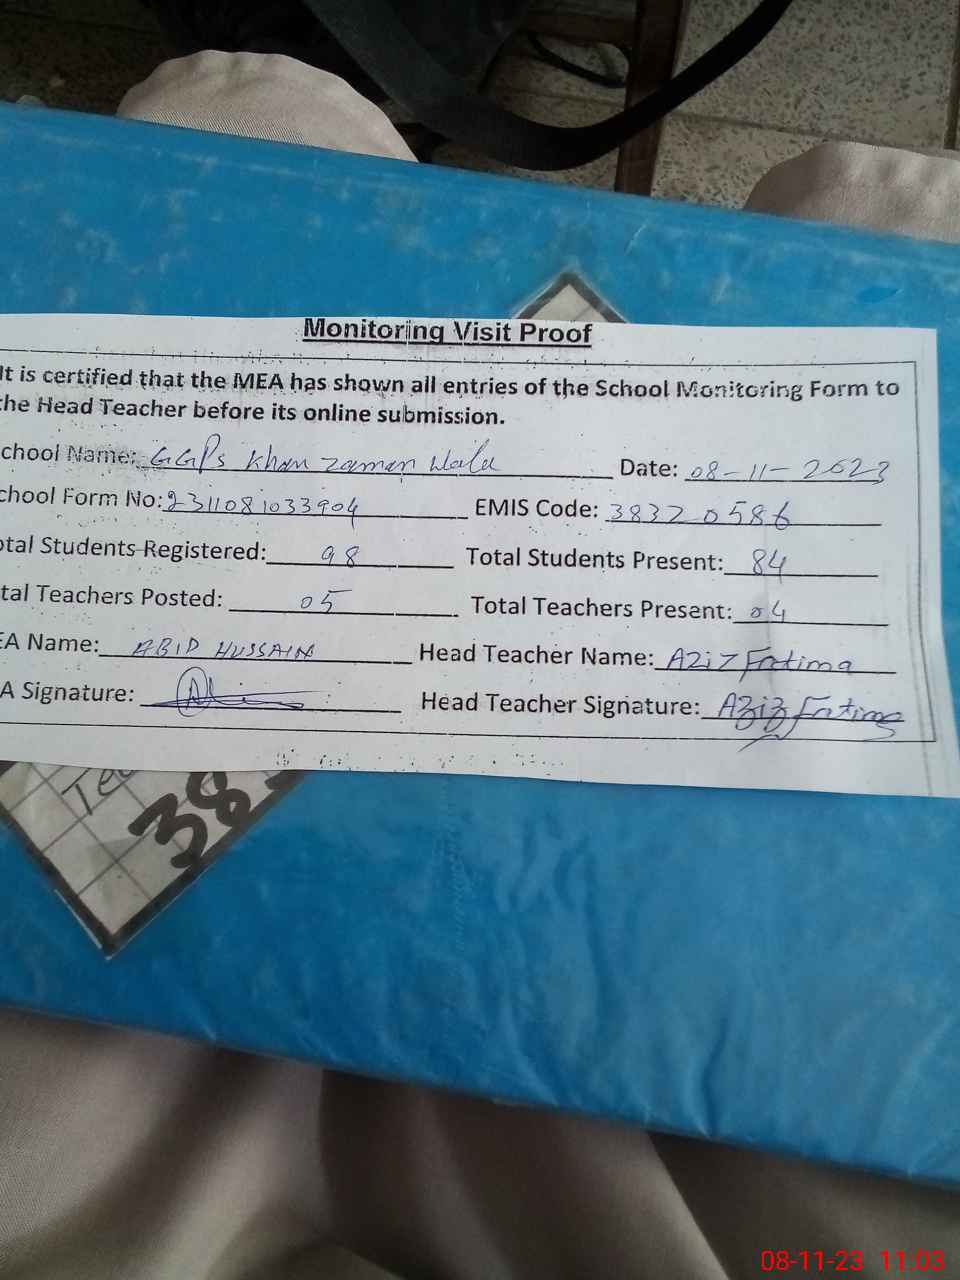 Monitoring Visit Proof
It is certified that the MEA has shown all entries of the School Monitoring Form to
the Head Teacher before its online submission.
chool Name: GGPS Khan Zaman Wala Date: 08-11-2023
chool Form No: 2311081033904 EMIS Code: 38320586
otal Students Registered: 98 Total Students Present: 84
tal Teachers Posted: 05 Total Teachers Present: 04
EA Name: ABID HUSSAIN Head Teacher Name: Aziz Fatima
A Signature: Head Teacher Signature: Aziz Fatima
Tea
38
08-11-23 11:03